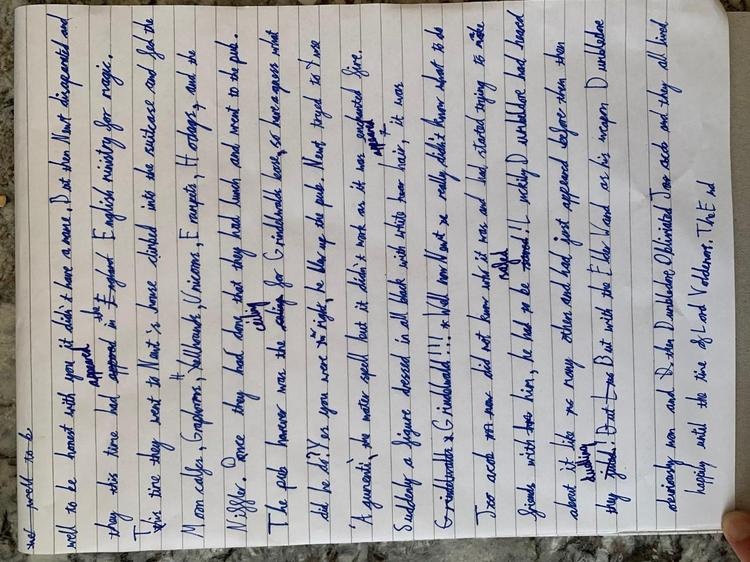 well to be
well to be honest with you it didn't have a name. But then Newt disapeared and
they this time had appeared in the English ministry for magic.
This time they went to Newt's house climbed into the suitcase and fed the
Moon calfs, Graphorns, Hellhounds, Unicorns, Erumpets, Hodags, and the
Niffler. Once they had done that they had lunch and went to the pub.
The pub however was the ceiling for Grindelwalds base, so have a guess what
did he do? Yes you were right, he blew up the pub. Newt tried to use
'Aguamenti', the water spell but it didn't work as it was enchanted fire.
Suddenly a figure dressed in all black with white hair, it was
Grindelwald!!! Well now Newt really didn't know what to do
did not know who it was and had started trying to make
friends with him, he had to be ! Luckily Dumbledore had heard
about it like many others and had just appeared before then then
they dueling! But with the Elder Wand as his weapon Dumbledore
obviously won and then Dumbledore Obliviated and they all lived
happily until the time of Lord Voldemort. The End